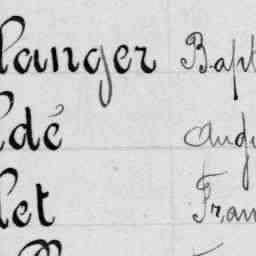 langer Bapt
dé Augu
let Fran